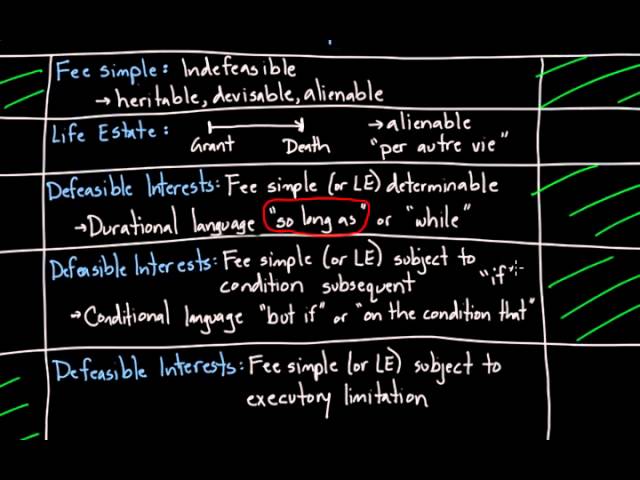 Fee simple: Indefeasible
→ heritable, devisable, alienable
Life Estate: → alienable
Grant Death "per autre vie"
Defeasible Interests: Fee simple (or LE) determinable
→ Durational language "so long as" or "while"
Defeasible Interests: Fee simple (or LE) subject to
condition subsequent "if"
→ Conditional language "but if" or "on the condition that"
Defeasible Interests: Fee simple (or LE) subject to
executory limitation